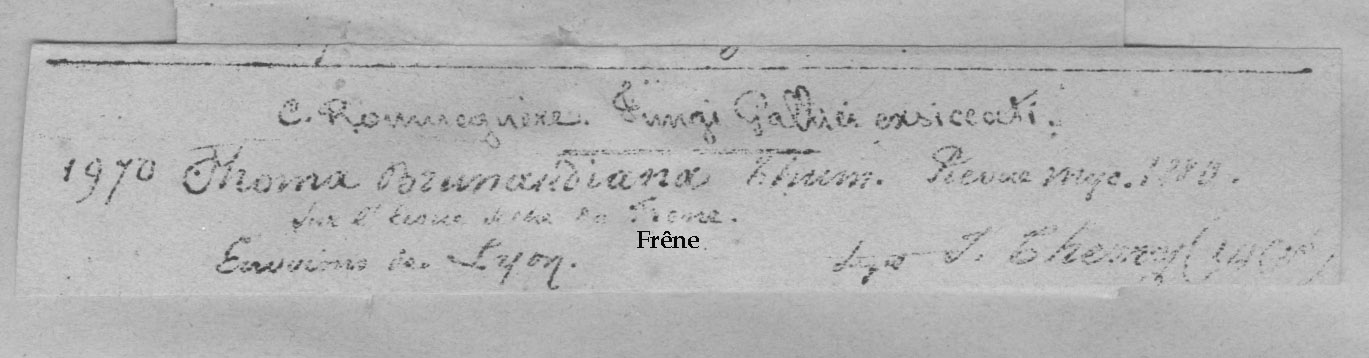 C. Roumeguère. Fungi Gallici exsiccati.
1970 Phoma Brunaudiana Thum. Revue myc. 1880.
Sur l'écorce du Frêne.
Frêne
Environs de Lyon. Legit J. Therry